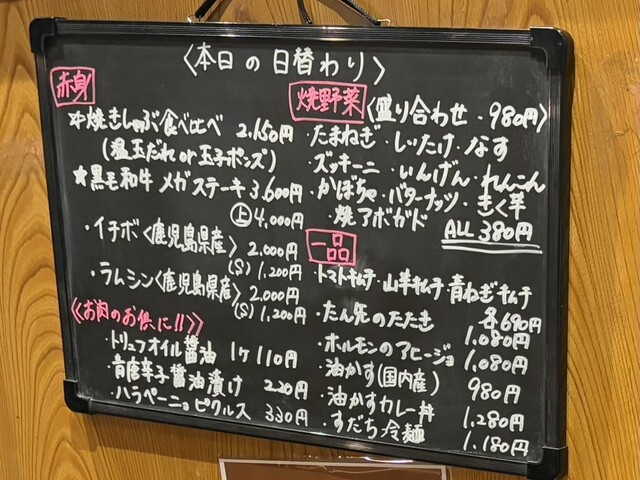 〈本日の日替わり〉
赤身
☆焼きしゃぶ食べ比べ 2.150円
(温玉だれ or 玉子ポンズ)
★黒毛和牛 メガステーキ 3.600円
上 4,000円
・イチボ〈鹿児島県産〉 2,000円
(S) 1,200円
・ラムシン〈鹿児島県産〉 2,000円
(S) 1,200円
〈〈お肉のお供に!!〉〉
・トリュフオイル醤油 1ケ 110円
・青唐辛子醤油漬け 220円
・ハラペーニョピクルス 330円
焼野菜 〈盛り合わせ・980円〉
・たまねぎ・しいたけ・なす
・ズッキーニ・いんげん・れんこん
・かぼちゃ・バターナッツ・きく芋
・焼アボガド ALL 380円
一品
・トマトキムチ・山芋キムチ・青ねぎキムチ
各680円
・たん先のたたき 1,080円
・ホルモンのアヒージョ 1,080円
・油かす(国内産) 980円
・油かすカレー丼 1,280円
・すだち冷麺 1,180円